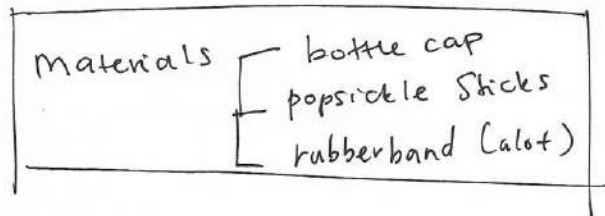 Materials
bottle cap
popsickle Sticks
rubberband (alot)